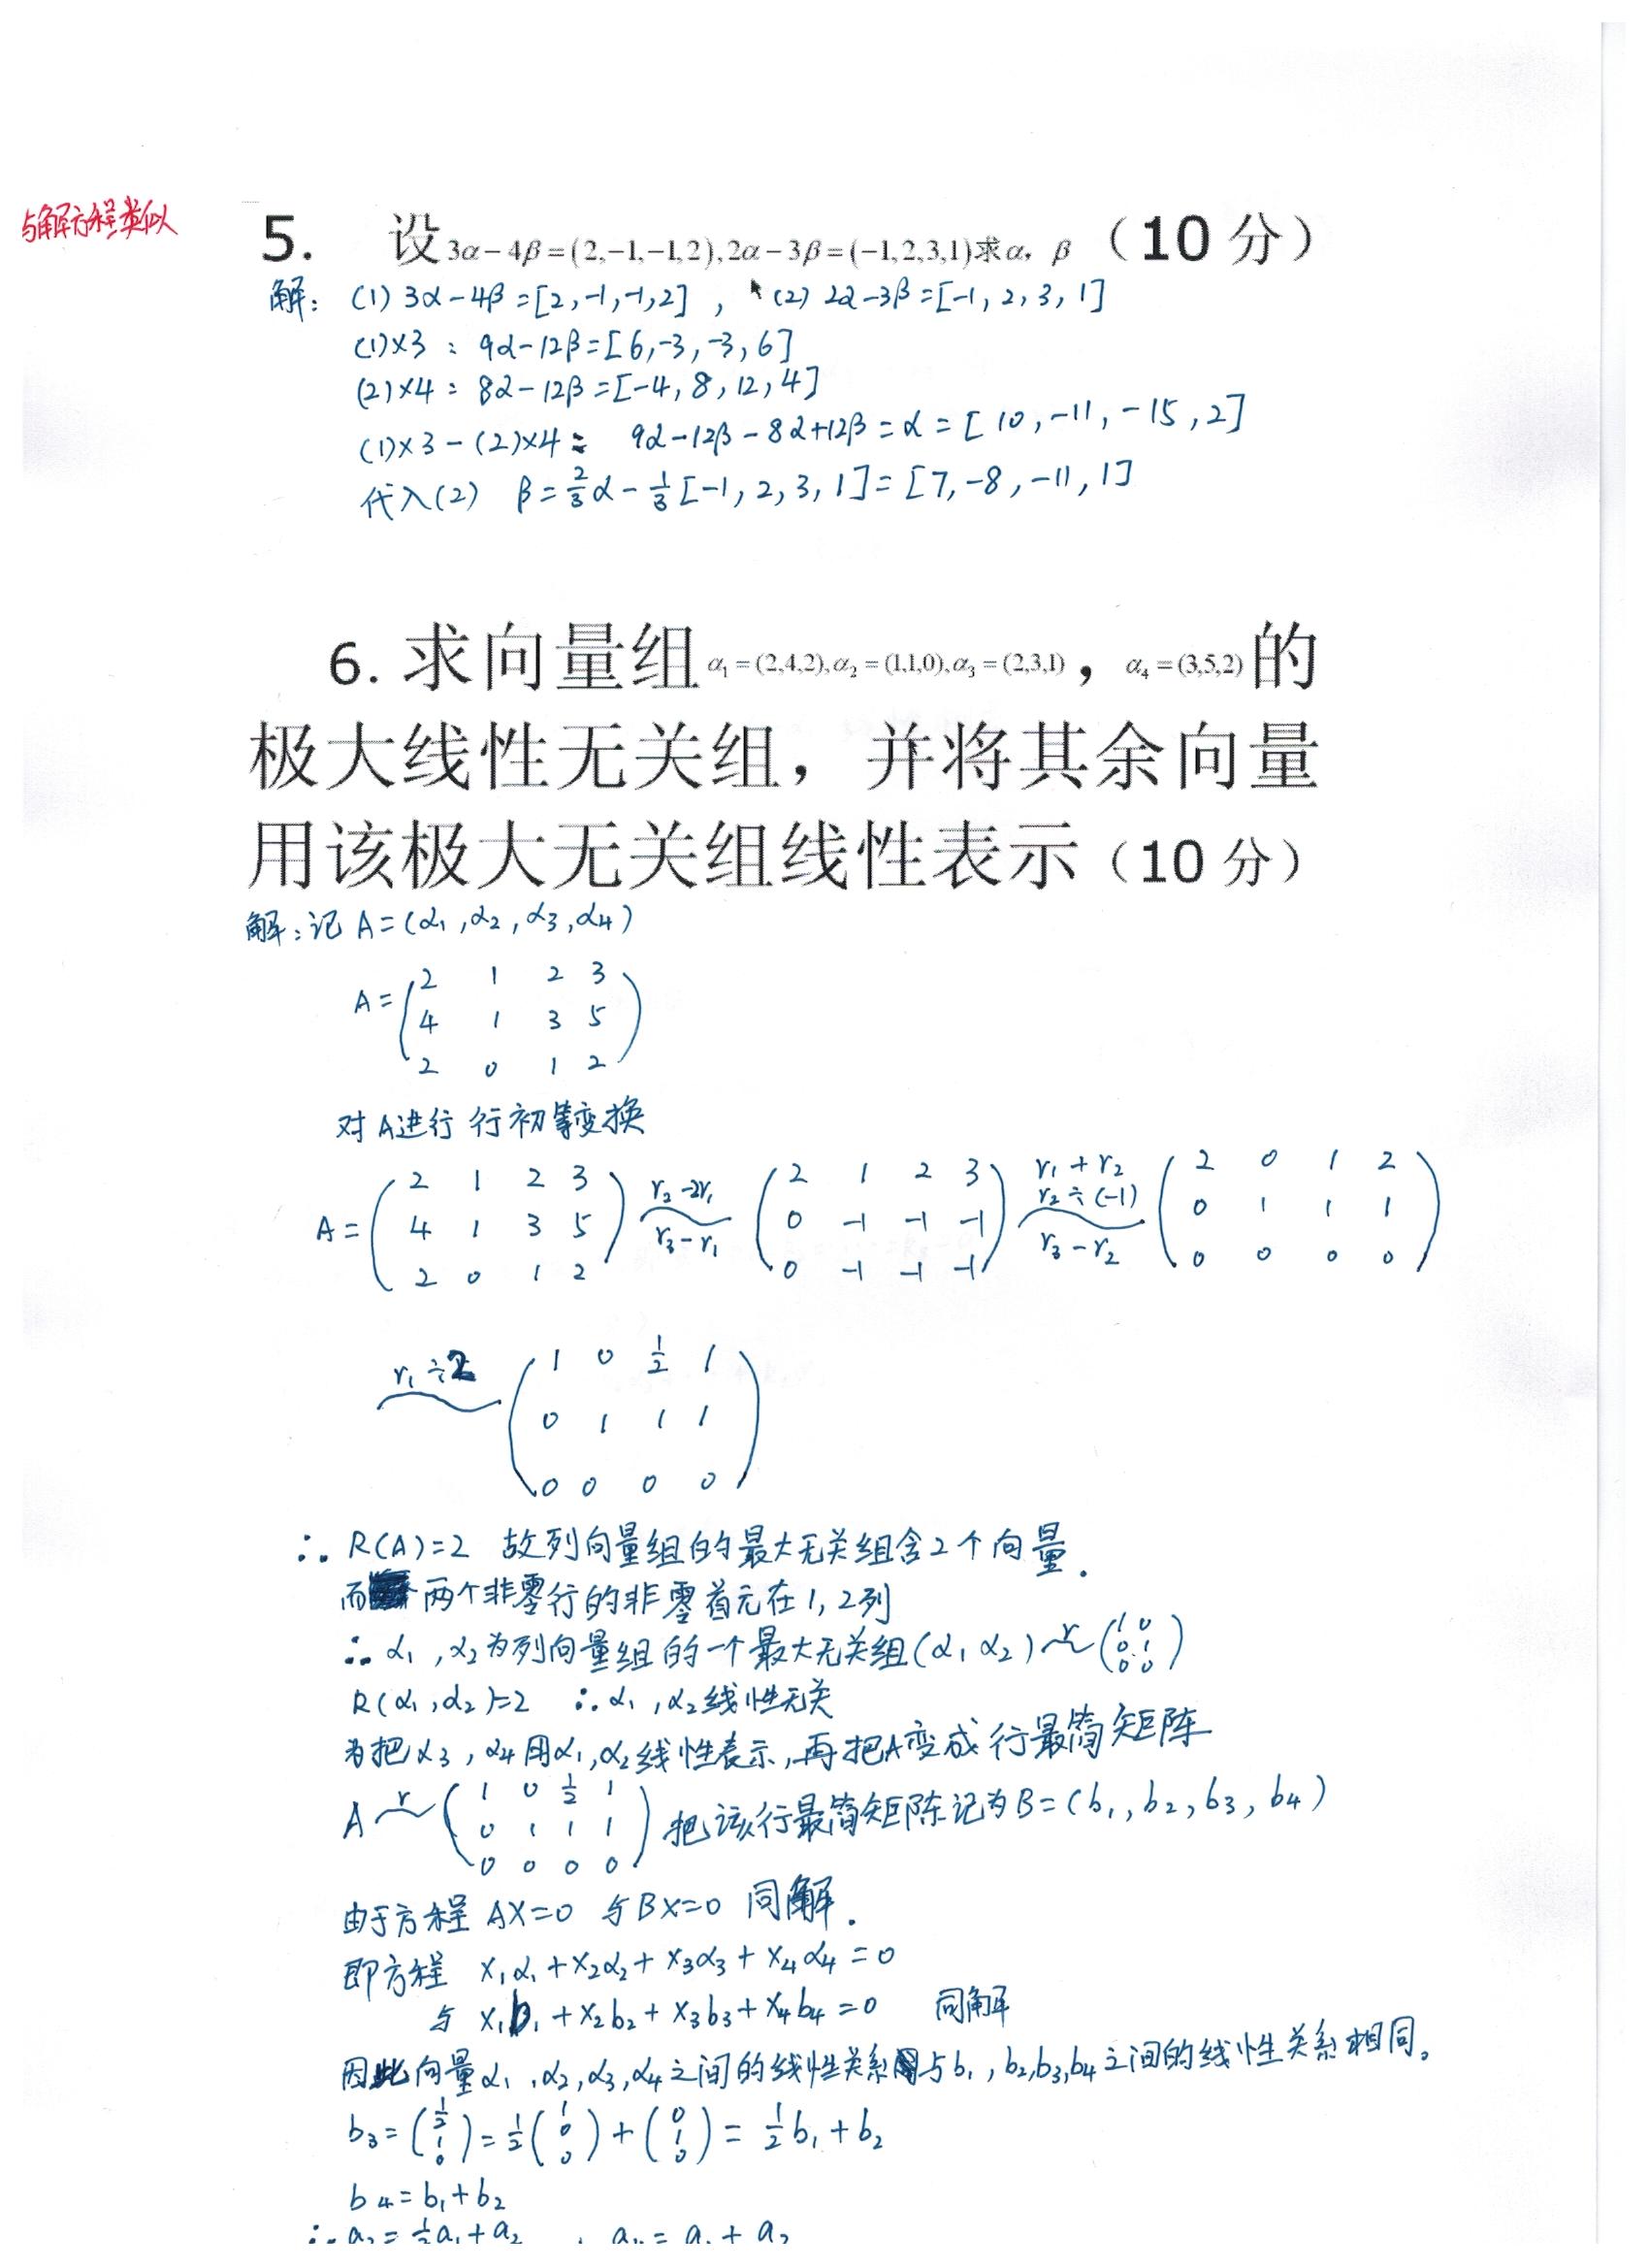 与解方程类似
5. 设3α-4β=(2,-1,-1,2),2α-3β=(-1,2,3,1)求α, β（10 分）
解: (1) 3α-4β=[2,-1,-1,2] , (2) 2α-3β=[-1, 2, 3, 1]
(1)×3 : 9α-12β=[6,-3,-3,6]
(2)×4 : 8α-12β=[-4, 8, 12, 4]
(1)×3-(2)×4 : 9α-12β-8α+12β=α=[10,-11,-15,2]
代入(2) β=2/3α-1/3[-1, 2, 3, 1]=[7,-8,-11,1]
6. 求向量组α₁=(2,4,2),α₂=(1,1,0),α₃=(2,3,1)，α₄=(3,5,2)的
极大线性无关组，并将其余向量
用该极大无关组线性表示（10 分）
解:记 A=(α₁,α₂,α₃,α₄)
A=
2 1 2 3
4 1 3 5
2 0 1 2
对A进行 行初等变换
A= (2 1 2 3) r₂-2r₁ (2 1 2 3) r₁+r₂ r₂÷(-1) (2 0 1 2)
(4 1 3 5) r₃-r₁ (0 -1 -1 -1) r₃-r₂ (0 1 1 1)
(2 0 1 2) (0 -1 -1 -1) (0 0 0 0)
r₁÷2 (1 0 1/2 1)
(0 1 1 1)
(0 0 0 0)
∴ R(A)=2 故列向量组的最大无关组含2个向量.
而 两个非零行的非零首元在1,2列
∴ α₁,α₂为列向量组的一个最大无关组(α₁ α₂) ~r (1 0; 0 1; 0 0)
R(α₁,α₂)=2 ∴α₁,α₂线性无关
为把α₃,α₄用α₁,α₂线性表示,再把A变成行最简矩阵
A ~r (1 0 1/2 1; 0 1 1 1; 0 0 0 0) 把该行最简矩阵记为B=(b₁,b₂,b₃,b₄)
由于方程 AX=0 与BX=0 同解.
即方程 x₁α₁+x₂α₂+x₃α₃+x₄α₄=0
与 x₁b₁+x₂b₂+x₃b₃+x₄b₄=0 同解
因此向量α₁,α₂,α₃,α₄之间的线性关系与b₁,b₂,b₃,b₄之间的线性关系相同。
b₃=(1/2; 1; 0)=1/2(1; 0; 0)+(0; 1; 0)=1/2b₁+b₂
b₄=b₁+b₂
∴ a₃=1/2a₁+a₂ , a₄=a₁+a₂